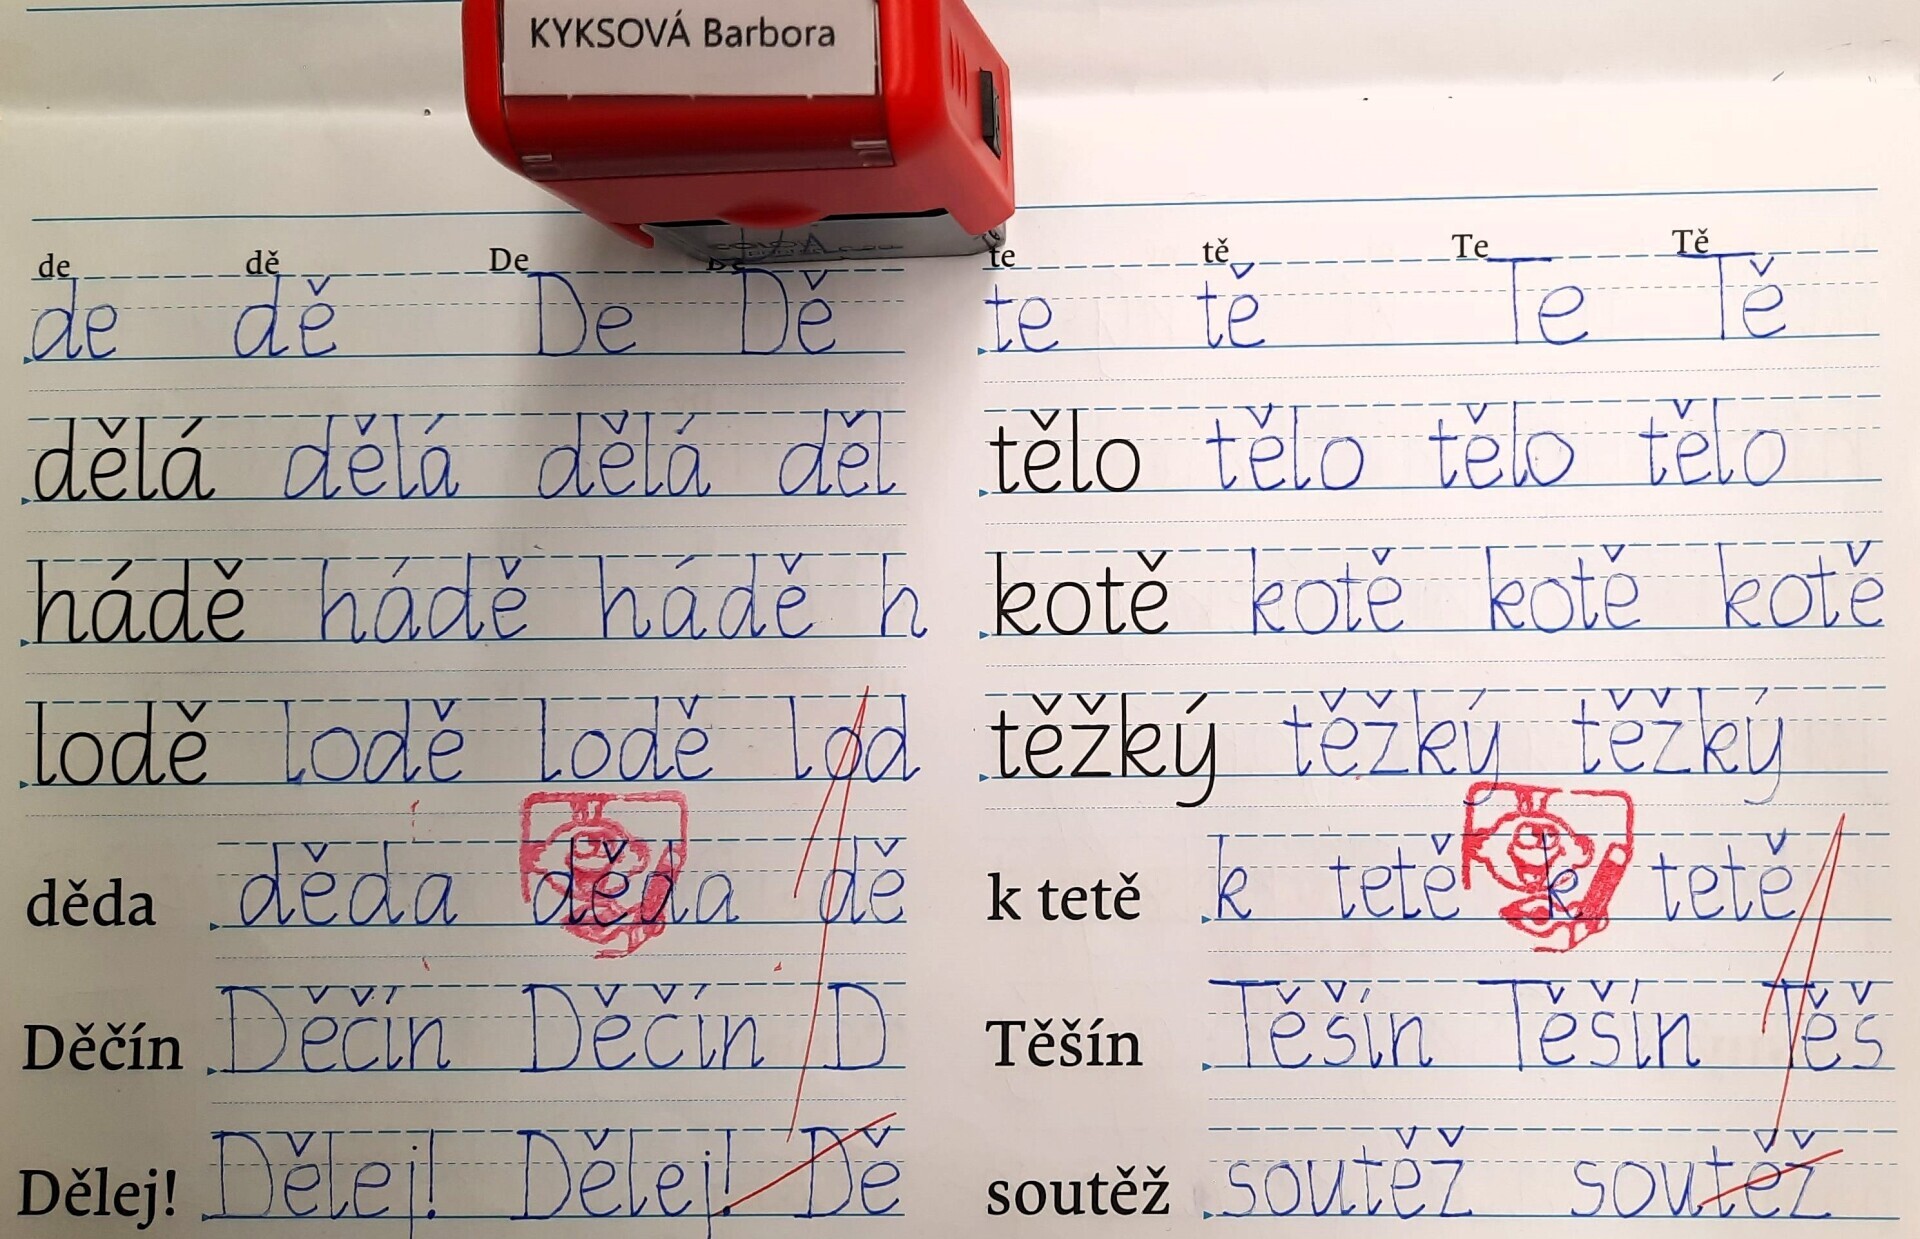 KYKSOVÁ Barbora
de dě De
de dě De Dě
dělá dělá dělá děl
hádě hádě hádě h
lodě lodě lodě lod
děda děda děda dě
Děčín Děčín Děčín D
Dělej! Dělej! Dělej! Dě
te tě Te Tě
te tě Te Tě
tělo tělo tělo tělo
kotě kotě kotě kotě
těžký těžký těžký
k tetě k tetě k tetě
Těšín Těšín Těšín Těš
soutěž soutěž soutěž